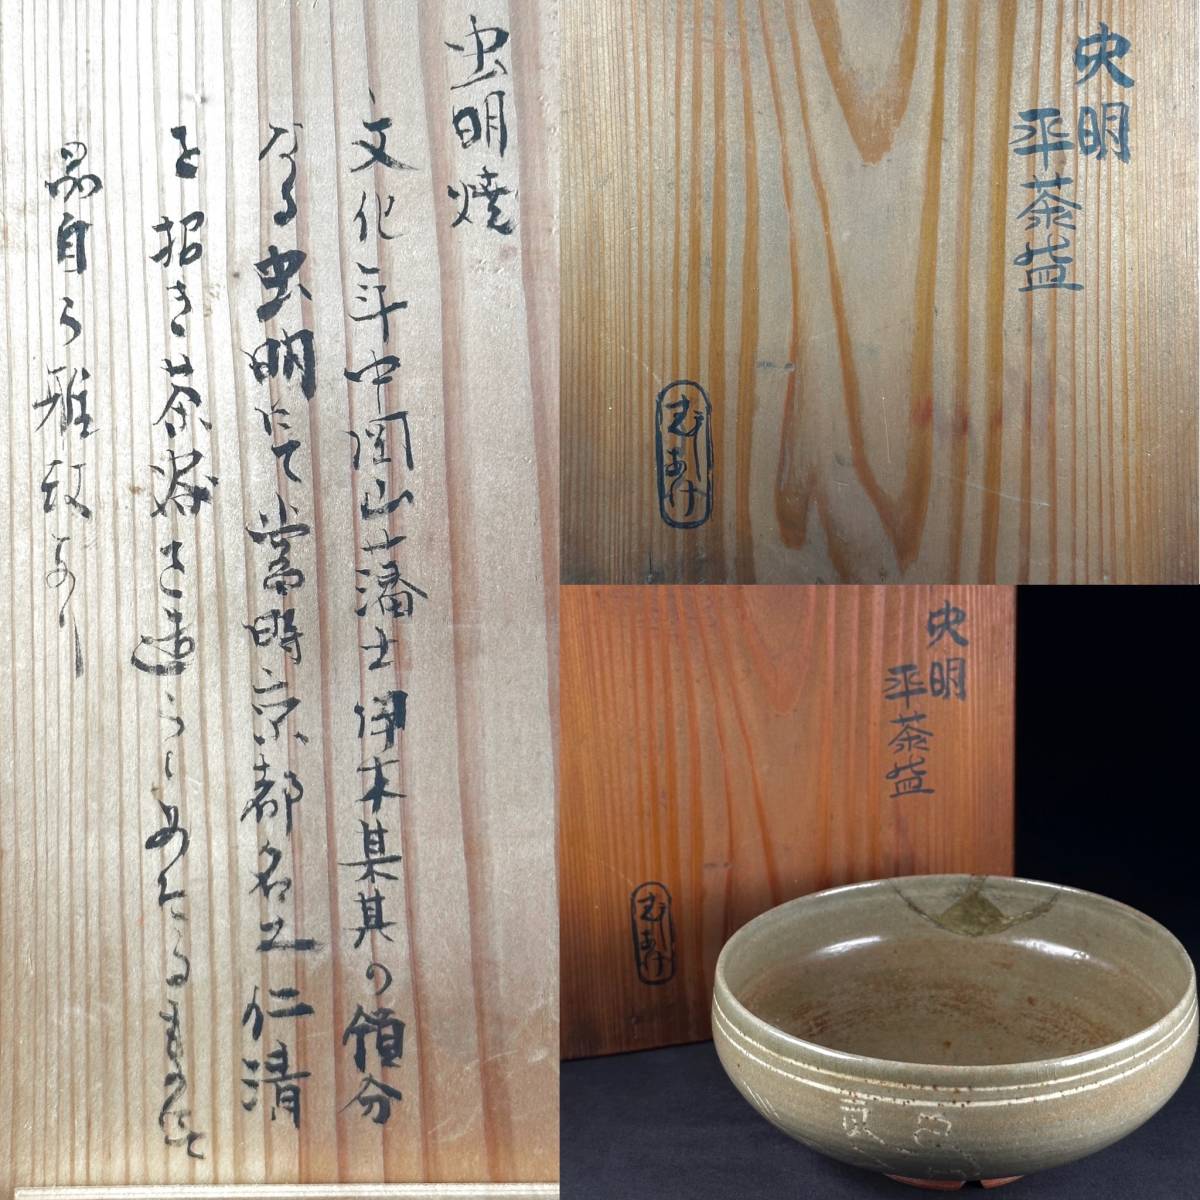 虫明焼
文化年中岡山藩士伊木某其の領分
なる虫明にて當時京都名工仁清
を招き茶器を造らしめたるもの
品自ら雅致あり
虫明
平茶盌
むしあけ
虫明
平茶盌
むしあけ